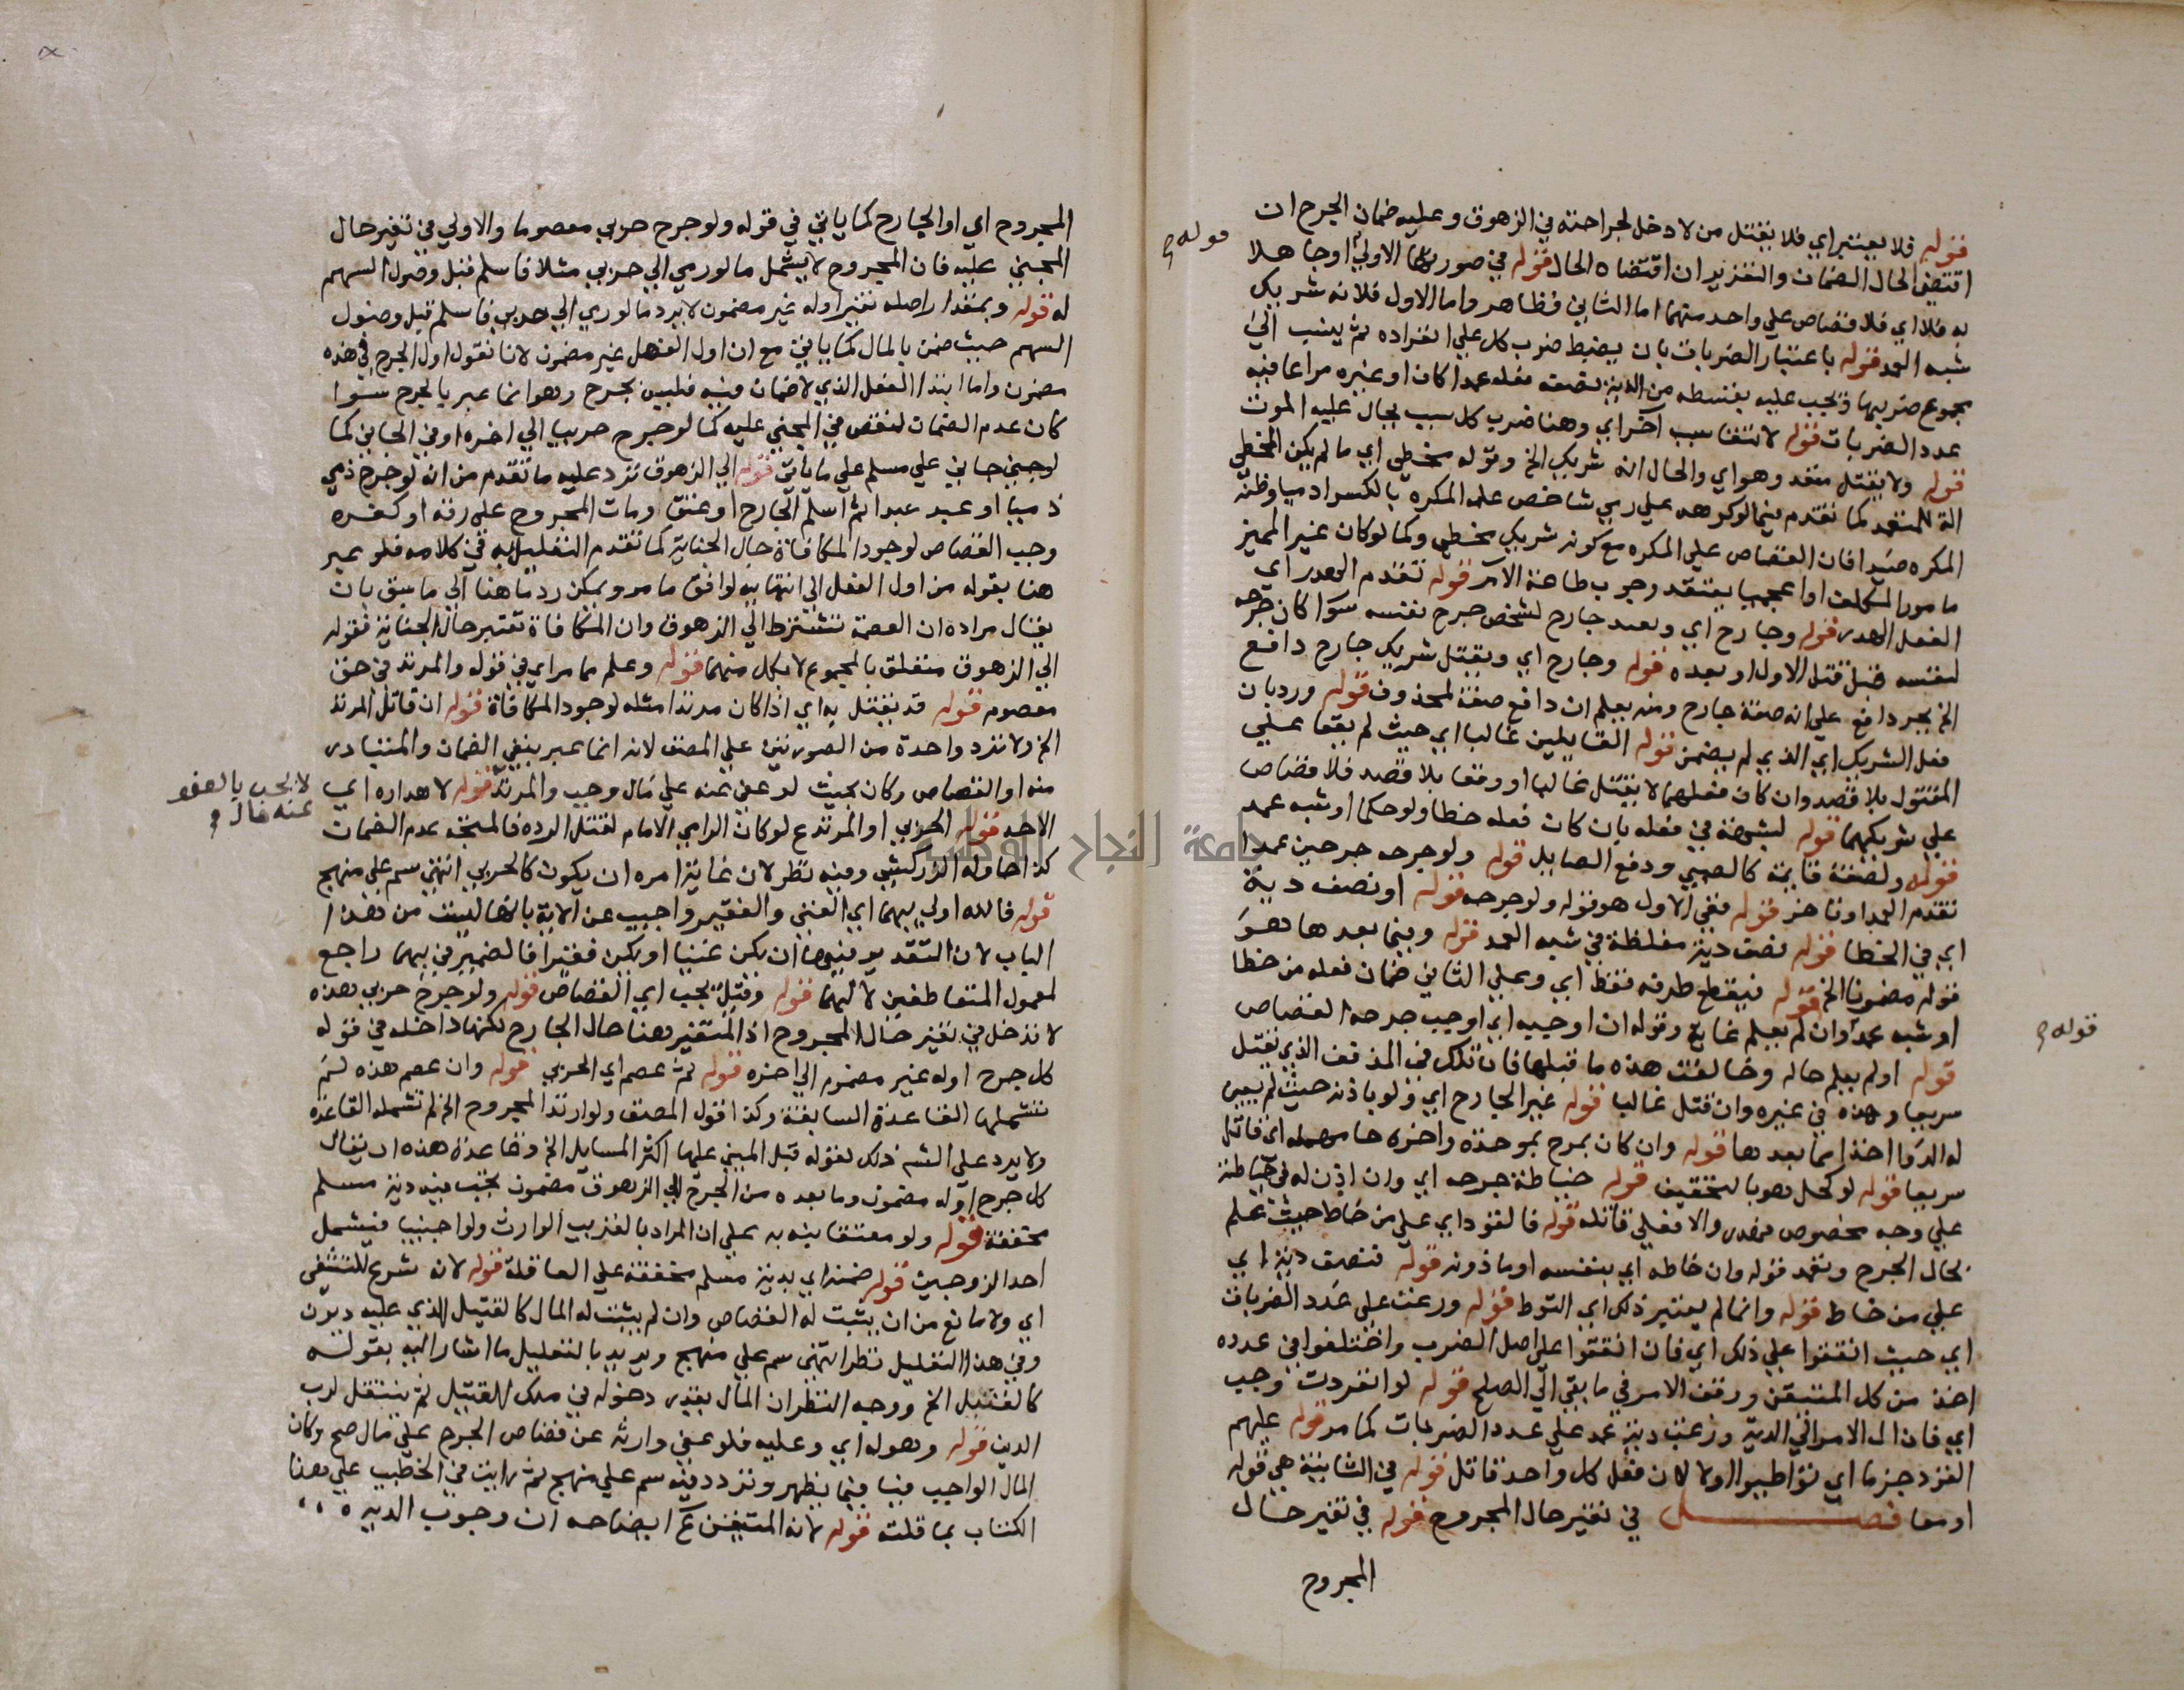 قوله فلا يعتبر اي فلا يقتل من لا دخل لجراحته في الزهوق وعليه ضمان الجرح ان
اقتضى الحال الضمان والتعزير ان اقتضاه الحال قوله في صورتها الاولى او جاهلا
به فلا اي فلا قصاص على واحد منهما اما الثاني فظاهر واما الاول فلانه شريك
شبه العمد قوله باعتبار الضربات بان يضبط ضرب كل على انفراده ثم ينسب الى
مجموع ضربهما فيجب عليه بقسطه من الدية بصفة فعله عمدا كان او غيره مراعا فيه
عدد الضربات قوله لانتفا سبب آخر اي وهنا ضرب كل سبب يحال عليه الموت
قوله ولا يقتل متعمد وهو اي والحال انه شريك الخ وقوله مخطي اي ما لم يكن المخطي
الة للمتعمد كما تقدم فيما لو كرهه على رمي شاخص علمه المكره بالكسر ادميا وظنه
المكره صيدا فان القصاص على المكره مع كونه شريك مخطي وكما لو كان غير المميز
مامور المكلف او اعجميا يعتقد وجوب طاعة الآمر قوله تقدم الهدر اي
الفعل الهدر قوله وجارح اي وبعد جارح لشخص جرح نفسه سوا كان جرحه
لنفسه قبل قتل الاول او بعده قوله وجارح اي ويقتل شريك جارح دافع
الخ بجر دافع على انه صفة جارح ومنه يعلم ان دافع صفة لمحذوف قوله ورد بان
فعل الشريك اي الذي لم يضمن قوله القاتلين غالبا اي حيث لم يقعا على
المقتول بلا قصد وان كان فعلهما لا يقتل غالبا او وقعا بلا قصد فلا قصاص
على شريكهما قوله لشبهة في فعله بان كان فعله خطا ولو حكما او شبه عمد
قوله ولصفة قايمة كالصبي ودفع الصايل قوله ولو جرحه جرحين عمدا
تقدم العمد او تاخر قوله ففي الاول هو قوله ولو جرحه قوله او نصف دية
اي في الخطا قوله نصف دية مغلظة في شبه العمد قوله وفيما بعدها هو
قوله مضمونا الخ قوله فيقطع طرفه فقط اي وعلى الثاني ضمان فعله من خطا
او شبه عمد وان لم يعلم غايع وقوله ان اوجبه اي اوجب جرحه القصاص
قوله او لم يعلم حاله وخالفت هذه ما قبلها فان تلك في المذفف الذي يقتل
سريعا وهذه في غيره وان قتل غالبا قوله غير الجارح اي ولو باذنه حيث لم يعين
له الدوا اخذا مما بعدها قوله وان كان بمرح بموحدة واخره حا مهمله اي قاتل
سريعا قوله لو كحل هو بالتخفيف قوله خياطة جرحه اي وان اذن له في خياطته
على وجه مخصوص فهدر والا فعلى قاتله قوله فالقود اي على من خاط حيث علم
بحال الجرح وتعمد قوله وان خاطه اي بنفسه او ماذونه قوله فنصف دية اي
على من خاط قوله وانما لم يعتبر ذلك اي التوط قوله ورعت على عدد الضربات
اي حيث اتفقوا على ذلك اي فان اتفقوا على اصل الضرب واختلفوا في عدده
اخذ من كل المتيقن ووقف الامر في ما بقي الى الصلح قوله لو انفردت وجب
اي فان ال الامر الى الدية وزعت دية عمد على عدد الضربات كما مر قوله عليهم
القود جزما اي تواطيوا اولا لان فعل كل واحد قاتل قوله في الثانية هي قوله
او معا فصل في تغير حال المجروح قوله في تغير حال
المجروح
قوله م
قوله م
المجروح اي او الجارح كما ياتي في قوله ولو جرح حربي معصوما والاولى في تغير حال
المجني عليه فان المجروح لا يشمل ما لو رمي الى حربي مثلا فاسلم قبل وصول السهم
له قوله وبمقدار اصله تغير اوله غير مضمون لا يرد ما لو رمي الى حربي فاسلم قبل وصول
السهم حيث ضمن بالمال كما ياتي مع ان اول الفعل غير مضمون لانا نقول اول الجرح في هذه
مضمون واما ابتدا الفعل الذي لا ضمان فيه فليس بجرح وهو انما عبر بالجرح سوا
كان عدم الضمان لنقص في المجني عليه كما لو جرح حربيا الى اخره او في الجاني كما
لو جني جاني على مسلم على ما ياتي قوله الى الزهوق ترد عليه ما تقدم من انه لو جرح ذمي
ذميا او عبد عبدا ثم اسلم الجارح او عتق ومات المجروح على رقه او كفره
وجب القصاص لوجود المكافاة حال الجناية كما تقدم التعليل به في كلامه فلو عبر
هنا بقوله من اول الفعل الى انتهايه لوافق ما مر ويمكن رد ما هنا الى ما سبق بان
يقال مراده ان العصمة تشترط الى الزهوق وان المكافاة تعتبر حال الجناية فقوله
الى الزهوق متعلق بالمجموع لا بكل منهما قوله وعلم مما مر اي في قوله والمرتد في حق
معصوم قوله قد يقتل به اي اذا كان مرتدا مثله لوجود المكافاة قوله ان قاتل المرتد
الخ ولا ترد واحدة من الصورتين على المصنف لانه انما عبر بنفي الضمان والمتبادر
منه او القصاص وكان بحيث لو عفي عنه على مال وجب والمرتد قوله لاهداره اي
لا يجب بالعفو
عنه مال م
الاحد قوله الحربي او المرتد ع لو كان الرامي الامام لقتل الرده فالمتجه عدم الضمان
كذا حاوله الزركشي وفيه نظر لان غاية امره ان يكون كالحربي انتهى سم على منهج
قوله فالله اولى بهما اي الغني والفقير واجيب عن الاية بانها ليست من هذا
الباب لان التقدير فيها ان يكن غنيا او يكن فقيرا فالضمير في بهما راجع
لمعمول المتعاطفين لا لهما قوله وقيل يجب اي القصاص قوله ولو جرح حربي هذه
لا تدخل في تغير حال المجروح اذ المتغير هنا حال الجارح لكنها داخله في قوله
كل جرح اوله غير مضمون الى اخره قوله ثم عصم اي الحربي قوله وان عصم هذه لم
تشملها القاعدة السابقة وكذا قول المصنف ولو ارتد المجروح الخ لم تشمله القاعده
ولا يرد على الشم ذلك لقوله قبل المبني عليها اكثر المسايل الخ وقاعدة هذه ان يقال
كل جرح اوله مضمون وما بعده من الجرح الى الزهوق مضمون يجب فيه دية مسلم
مخففة قوله ولو معتقا ينبه به على ان المراد بالقريب الوارث ولو اجنبيا فيشمل
احد الزوجين قوله ضمنه اي بدية مسلم مخففة على العاقلة قوله لانه شرع للتشفي
اي ولا مانع من ان يثبت له القصاص وان لم يثبت له المال كالقتيل الذي عليه ديون
وفي هذا التعليل نظر انتهى سم على منهج ويريد بالتعليل ما اشار اليه بقوله
كالقتيل الخ ووجه النظر ان المال يقدر دخوله في ملك القتيل ثم ينتقل لرب
الدين قوله وهوله اي وعليه فلو عفى وارثه عن قصاص الجرح على مال صح وكان
المال الواجب فيا فيما يظهر وتردد فيه سم على منهج ثم رايت في الخطيب على هذا
الكتاب بما قلته قوله لانه المتيقن ع ايضاحه ان وجوب الديه
جامعة النجاح الوطنية